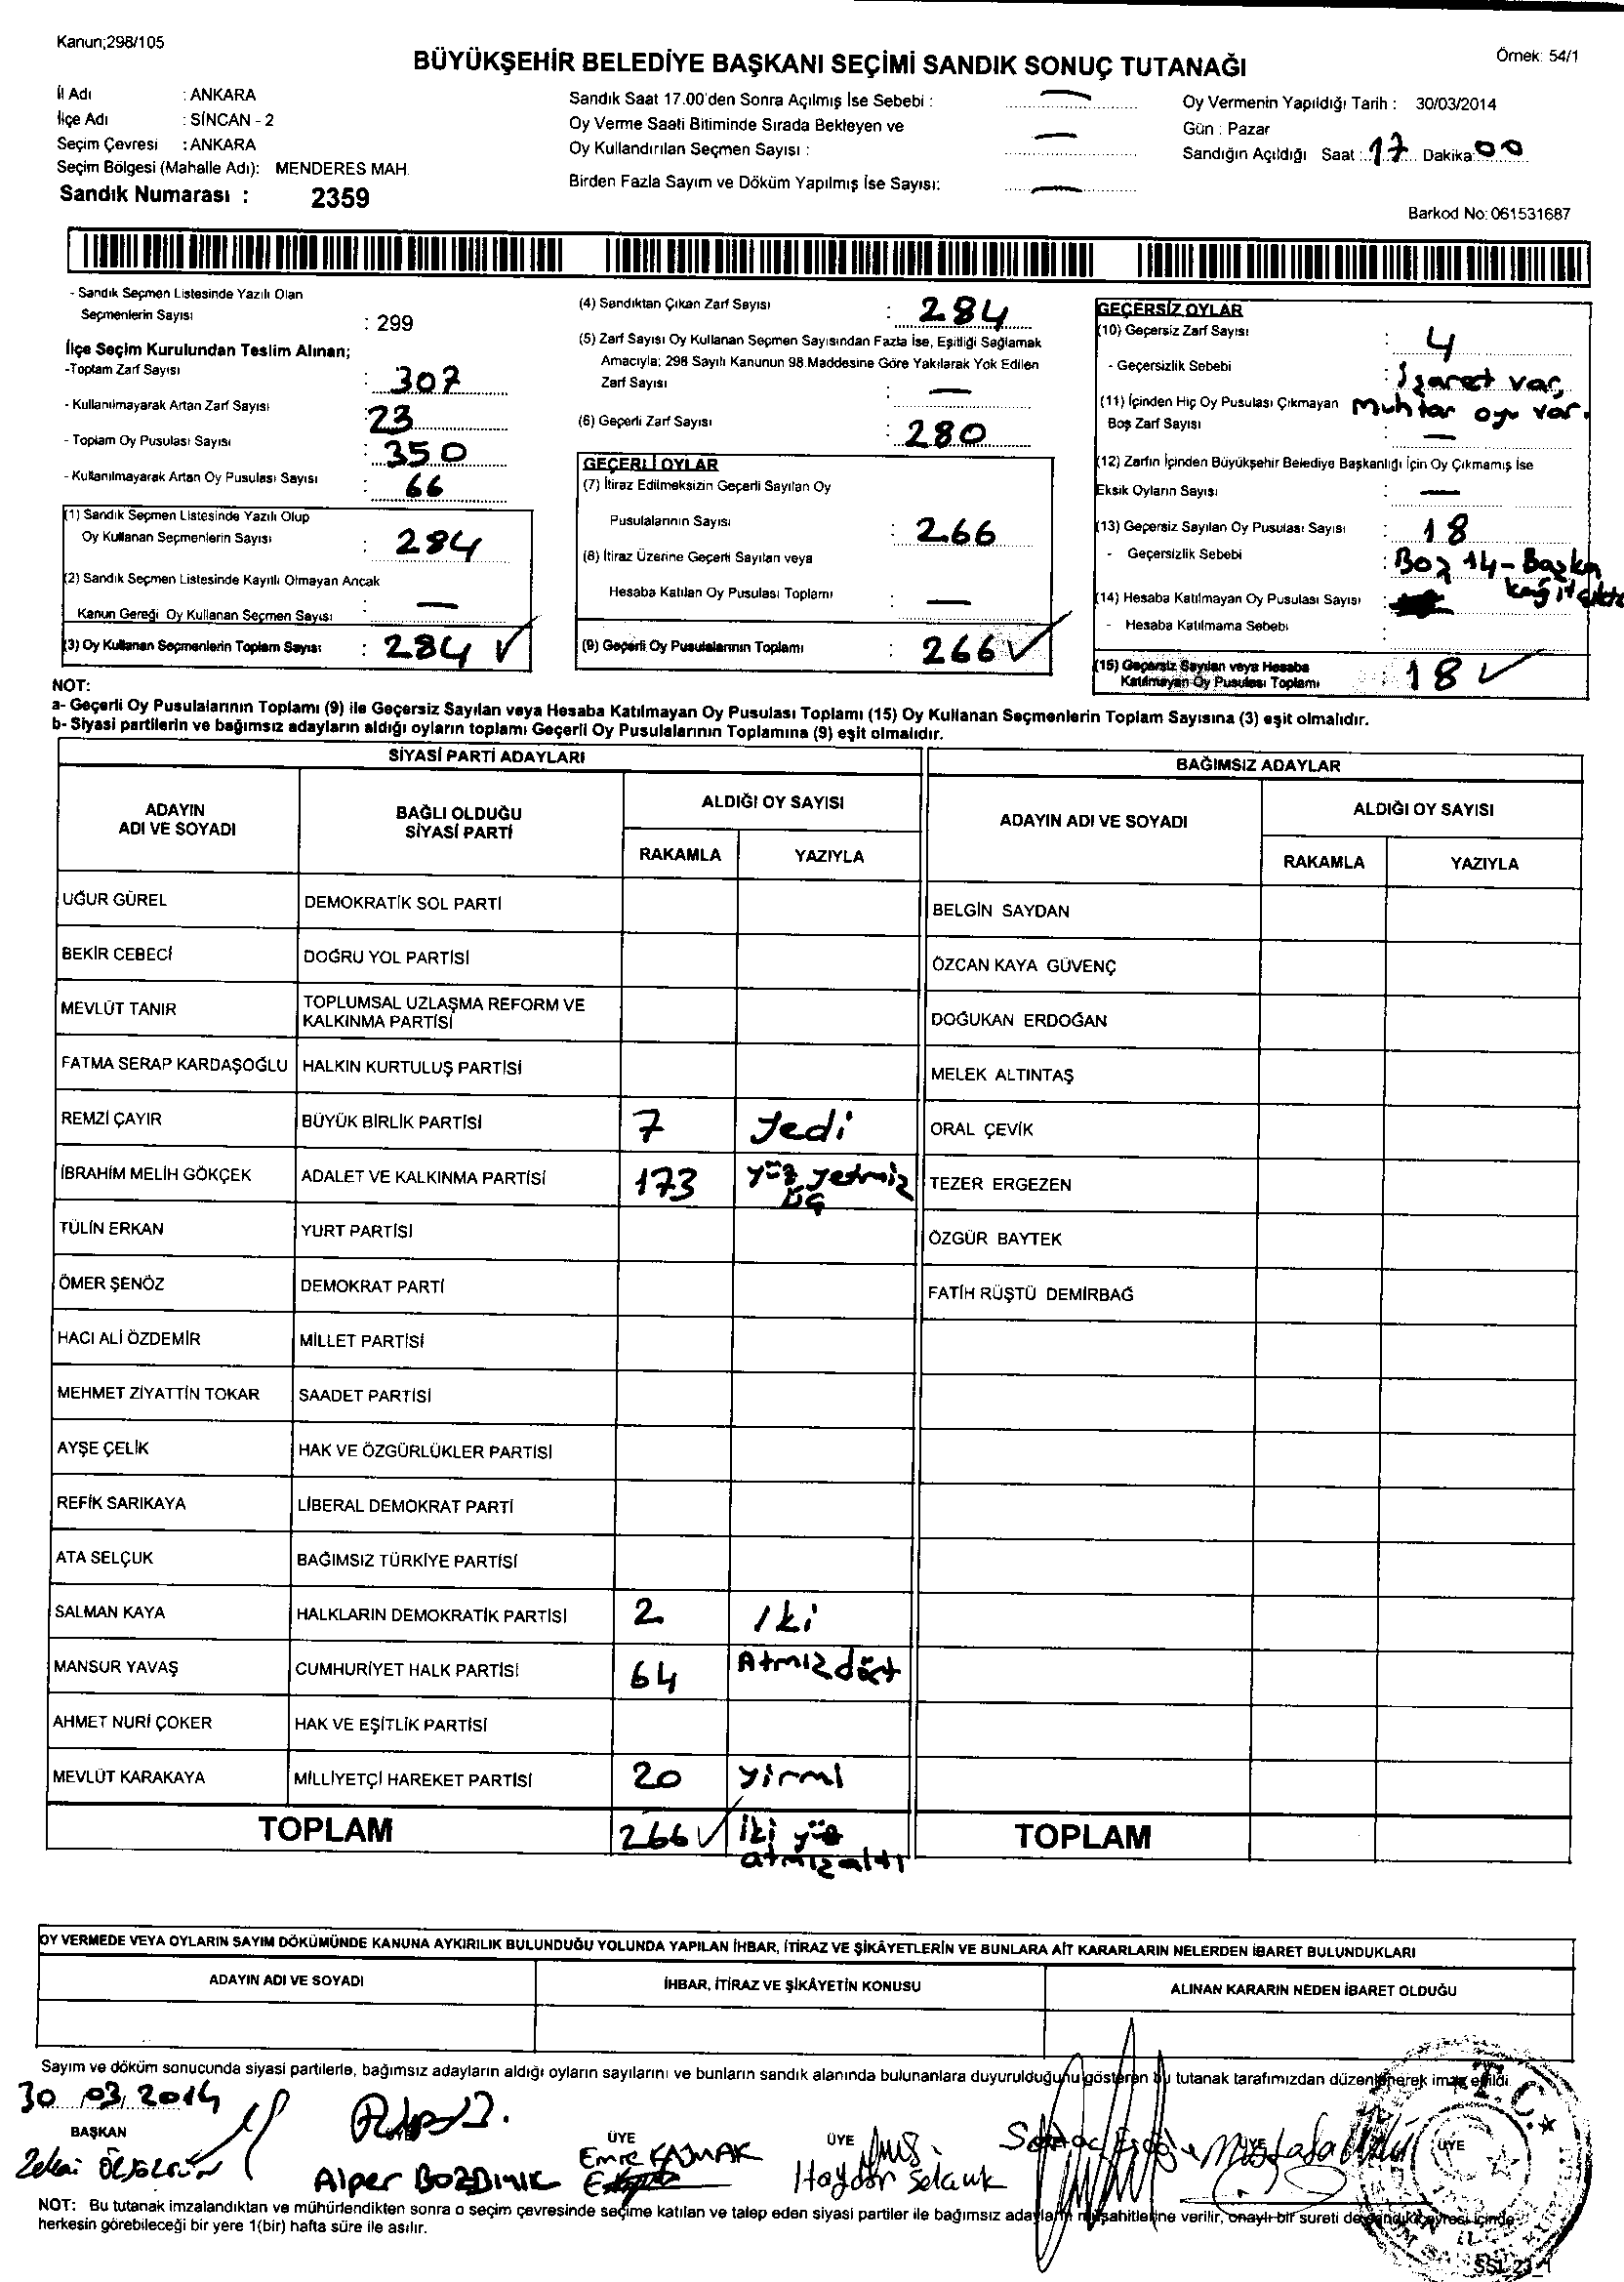 Kanun;298/105
Örnek: 54/1
BÜYÜKŞEHİR BELEDİYE BAŞKANI SEÇİMİ SANDIK SONUÇ TUTANAĞI
İl Adı : ANKARA
İlçe Adı : SİNCAN - 2
Seçim Çevresi : ANKARA
Seçim Bölgesi (Mahalle Adı): MENDERES MAH.
Sandık Numarası : 2359
Sandık Saat 17.00'den Sonra Açılmış İse Sebebi : —
Oy Verme Saati Bitiminde Sırada Bekleyen ve
Oy Kullandırılan Seçmen Sayısı : —
Birden Fazla Sayım ve Döküm Yapılmış İse Sayısı: —
Oy Vermenin Yapıldığı Tarih : 30/03/2014
Gün : Pazar
Sandığın Açıldığı Saat : 17 Dakika: 00
Barkod No: 061531687
- Sandık Seçmen Listesinde Yazılı Olan
Seçmenlerin Sayısı : 299
İlçe Seçim Kurulundan Teslim Alınan;
-Toplam Zarf Sayısı : 307
- Kullanılmayarak Artan Zarf Sayısı : 23
- Toplam Oy Pusulası Sayısı : 350
- Kullanılmayarak Artan Oy Pusulası Sayısı : 66
(1) Sandık Seçmen Listesinde Yazılı Olup
Oy Kullanan Seçmenlerin Sayısı : 284
(2) Sandık Seçmen Listesinde Kayıtlı Olmayan Ancak
Kanun Gereği Oy Kullanan Seçmen Sayısı : —
(3) Oy Kullanan Seçmenlerin Toplam Sayısı : 284 ✓
(4) Sandıktan Çıkan Zarf Sayısı : 284
(5) Zarf Sayısı Oy Kullanan Seçmen Sayısından Fazla İse, Eşitliği Sağlamak
Amacıyla; 298 Sayılı Kanunun 98.Maddesine Göre Yakılarak Yok Edilen
Zarf Sayısı : —
(6) Geçerli Zarf Sayısı : 280
GEÇERLİ OYLAR
(7) İtiraz Edilmeksizin Geçerli Sayılan Oy
Pusulalarının Sayısı : 266
(8) İtiraz Üzerine Geçerli Sayılan veya
Hesaba Katılan Oy Pusulası Toplamı : —
(9) Geçerli Oy Pusulalarının Toplamı : 266 ✓
GEÇERSİZ OYLAR
(10) Geçersiz Zarf Sayısı : 4
- Geçersizlik Sebebi : İşaret var,
muhtar oyu var.
(11) İçinden Hiç Oy Pusulası Çıkmayan
Boş Zarf Sayısı : —
(12) Zarfın İçinden Büyükşehir Belediye Başkanlığı İçin Oy Çıkmamış İse
Eksik Oyların Sayısı : —
(13) Geçersiz Sayılan Oy Pusulası Sayısı : 18
- Geçersizlik Sebebi : Boş 14 - Başka
kağıt çıktı
(14) Hesaba Katılmayan Oy Pusulası Sayısı :
- Hesaba Katılmama Sebebi :
(15) Geçersiz Sayılan veya Hesaba
Katılmayan Oy Pusulası Toplamı : 18 ✓
NOT:
a- Geçerli Oy Pusulalarının Toplamı (9) ile Geçersiz Sayılan veya Hesaba Katılmayan Oy Pusulası Toplamı (15) Oy Kullanan Seçmenlerin Toplam Sayısına (3) eşit olmalıdır.
b- Siyasi partilerin ve bağımsız adayların aldığı oyların toplamı Geçerli Oy Pusulalarının Toplamına (9) eşit olmalıdır.
SİYASİ PARTİ ADAYLARI
BAĞIMSIZ ADAYLAR
ADAYIN
ADI VE SOYADI
BAĞLI OLDUĞU
SİYASİ PARTİ
ALDIĞI OY SAYISI
RAKAMLA YAZIYLA
ADAYIN ADI VE SOYADI
ALDIĞI OY SAYISI
RAKAMLA YAZIYLA
UĞUR GÜREL DEMOKRATİK SOL PARTİ
BELGİN SAYDAN
BEKİR CEBECİ DOĞRU YOL PARTİSİ
ÖZCAN KAYA GÜVENÇ
MEVLÜT TANIR TOPLUMSAL UZLAŞMA REFORM VE
KALKINMA PARTİSİ
DOĞUKAN ERDOĞAN
FATMA SERAP KARDAŞOĞLU HALKIN KURTULUŞ PARTİSİ
MELEK ALTINTAŞ
REMZİ ÇAYIR BÜYÜK BİRLİK PARTİSİ 7 Yedi
ORAL ÇEVİK
İBRAHİM MELİH GÖKÇEK ADALET VE KALKINMA PARTİSİ 173 yüz yetmiz
üç
TEZER ERGEZEN
TÜLİN ERKAN YURT PARTİSİ
ÖZGÜR BAYTEK
ÖMER ŞENÖZ DEMOKRAT PARTİ
FATİH RÜŞTÜ DEMİRBAĞ
HACI ALİ ÖZDEMİR MİLLET PARTİSİ
MEHMET ZİYATTİN TOKAR SAADET PARTİSİ
AYŞE ÇELİK HAK VE ÖZGÜRLÜKLER PARTİSİ
REFİK SARIKAYA LİBERAL DEMOKRAT PARTİ
ATA SELÇUK BAĞIMSIZ TÜRKİYE PARTİSİ
SALMAN KAYA HALKLARIN DEMOKRATİK PARTİSİ 2 İki
MANSUR YAVAŞ CUMHURİYET HALK PARTİSİ 64 Atmız dört
AHMET NURİ ÇOKER HAK VE EŞİTLİK PARTİSİ
MEVLÜT KARAKAYA MİLLİYETÇİ HAREKET PARTİSİ 20 yirmi
TOPLAM 266 ✓ iki yüz
atmız altı
TOPLAM
OY VERMEDE VEYA OYLARIN SAYIM DÖKÜMÜNDE KANUNA AYKIRILIK BULUNDUĞU YOLUNDA YAPILAN İHBAR, İTİRAZ VE ŞİKÂYETLERİN VE BUNLARA AİT KARARLARIN NELERDEN İBARET BULUNDUKLARI
ADAYIN ADI VE SOYADI
İHBAR, İTİRAZ VE ŞİKÂYETİN KONUSU
ALINAN KARARIN NEDEN İBARET OLDUĞU
Sayım ve döküm sonucunda siyasi partilerle, bağımsız adayların aldığı oyların sayılarını ve bunların sandık alanında bulunanlara duyurulduğunu gösteren bu tutanak tarafımızdan düzenlenerek imza edildi.
30.03.2014
BAŞKAN ÜYE ÜYE ÜYE
Alper BOZDINIC
Emre KAYMAK
Haydar Selcuk
T.C.
NOT: Bu tutanak imzalandıktan ve mühürlendikten sonra o seçim çevresinde seçime katılan ve talep eden siyasi partiler ile bağımsız adayların müşahitlerine verilir, onaylı bir sureti de sandık çevresi içinde
herkesin görebileceği bir yere 1(bir) hafta süre ile asılır.